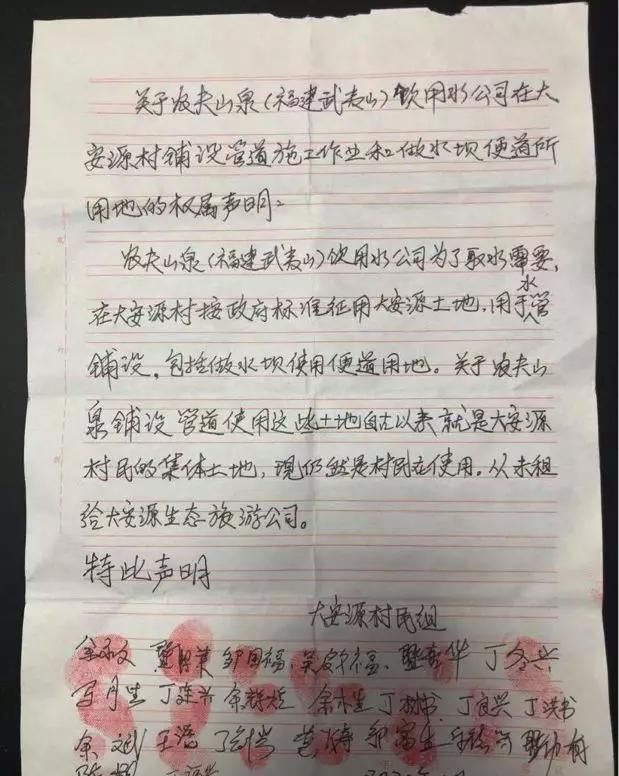 关于农夫山泉(福建武夷山)饮用水公司在大
安源村铺设管道施工作业和做水坝便道所
用地的权属声明：
农夫山泉(福建武夷山)饮用水公司为了取水需要,
在大安源村按政府标准征用大安源土地,用于水管
铺设,包括做水坝使用便道用地。关于农夫山
泉铺设管道使用这些土地自古以来就是大安源
村民的集体土地,现仍然是村民在使用。从未租
给大安源生态旅游公司。
特此声明
大安源村民组
邹国福 丁冬兴
丁连兴 丁良兴 丁洪书
余 王